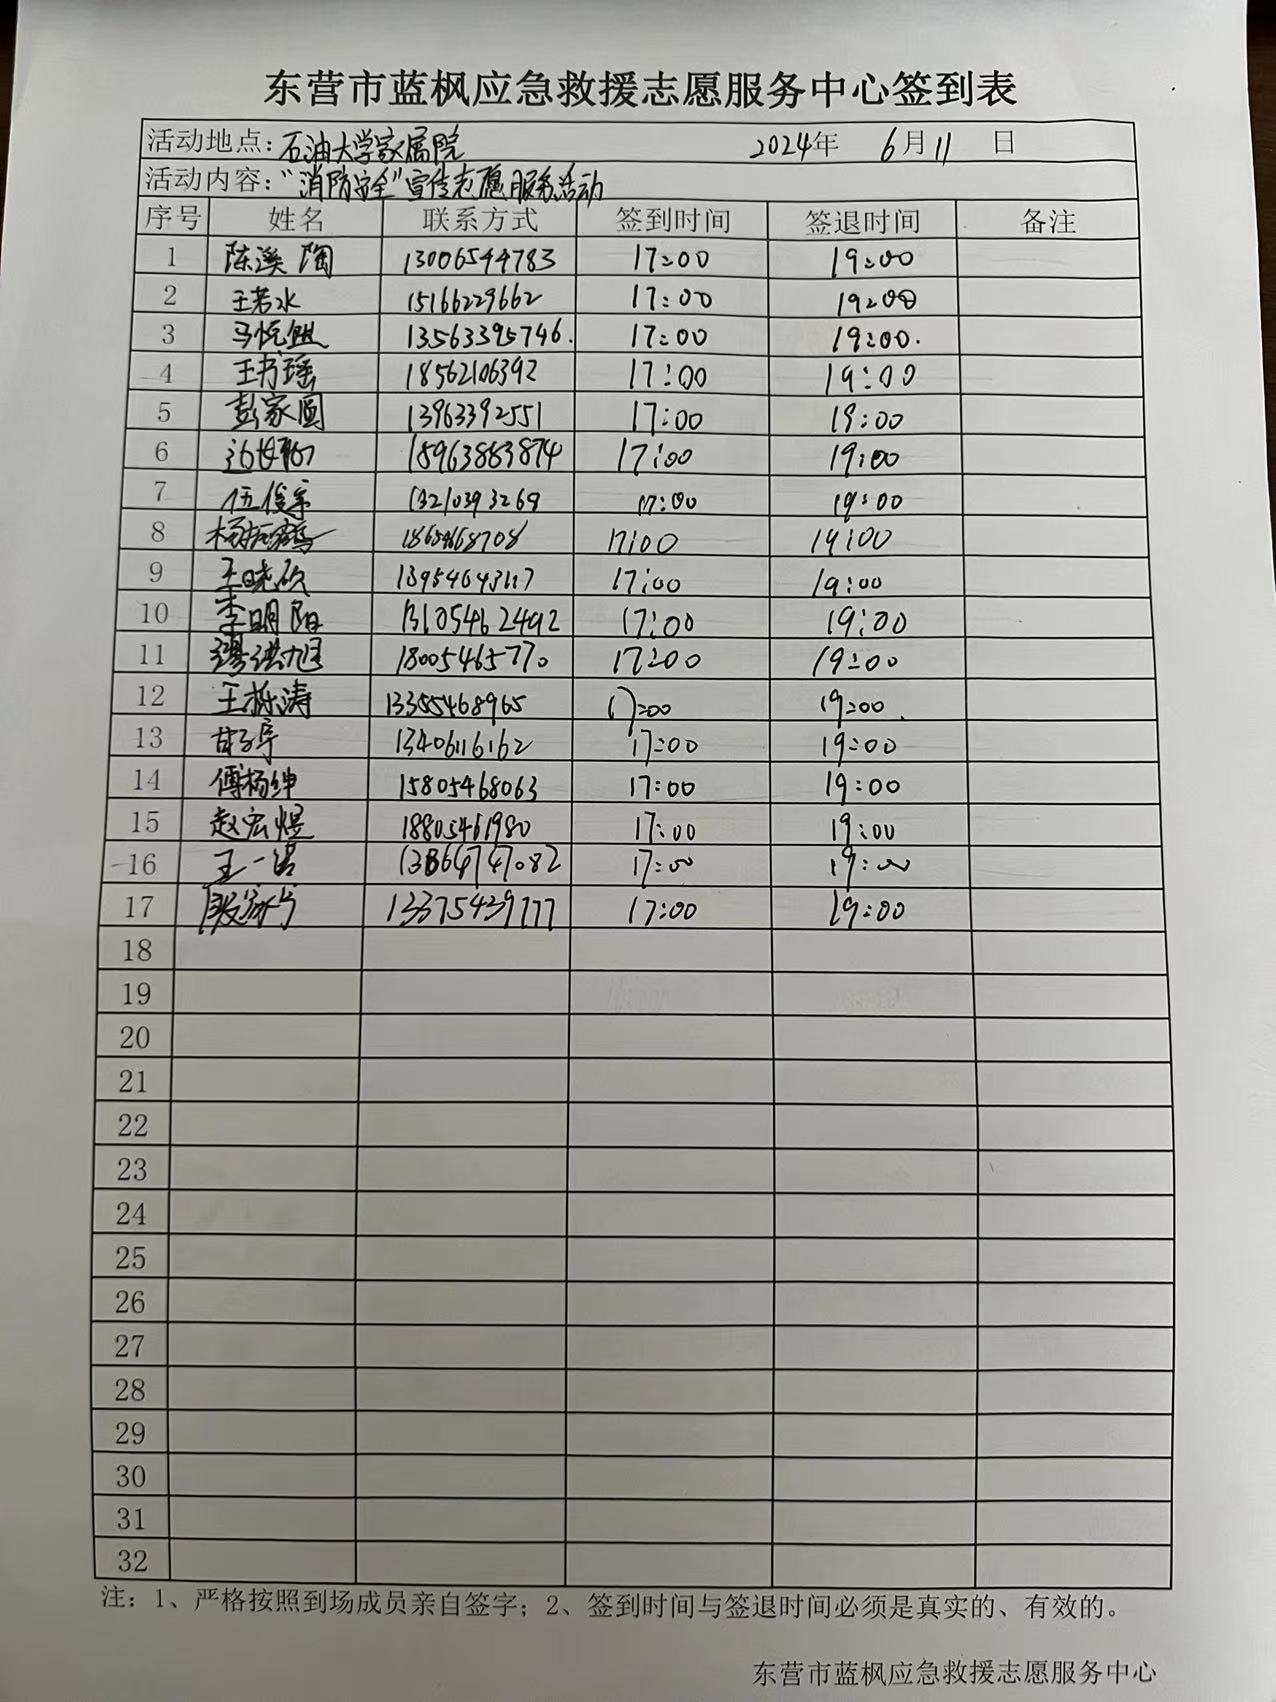 东营市蓝枫应急救援志愿服务中心签到表
活动地点：石油大学家属院 2024年 6月11 日
活动内容："消防安全"宣传志愿服务活动
序号 姓名 联系方式 签到时间 签退时间 备注
1 陈溪陶 13006544783 17:00 19:00
2 王若水 15166229662 17:00 19:00
3 13563395746. 17:00 19:00.
4 王书瑶 18562106392 17:00 19:00
5 彭家圆 13963392551 17:00 19:00
6 15963883874 17:00 19:00
7 伍俊宇 13210393269 17:00 19:00
8 17:00 19:00
9 王晓欣 17:00 19:00
10 李明阳 13105462492 17:00 19:00
11 缪洪旭 18005465770 17:00 19:00
12 王栎涛 13355468965 17:00 19:00.
13 13406116162 17:00 19:00
14 傅杨绅 15805468063 17:00 19:00
15 赵宏煜 18805461980 17:00 19:00
16 王一诺 13864747082 17:00 19:00
17 13375439777 17:00 19:00
18
19
20
21
22
23
24
25
26
27
28
29
30
31
32
注：1、严格按照到场成员亲自签字；2、签到时间与签退时间必须是真实的、有效的。
东营市蓝枫应急救援志愿服务中心